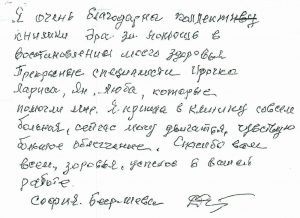 Я очень благодарна коллективу
клиники Эра за помощь в
восстановлении моего здоровья
Прекрасные специалисты Ирочка
Лариса, Ян, Люба, которые
помогли мне. Я пришла в клинику совсем
больная, сейчас могу двигатся, чувствую
большое облегчение. Спасибо вам
всем, здоровья, успехов в вашей
работе.
София